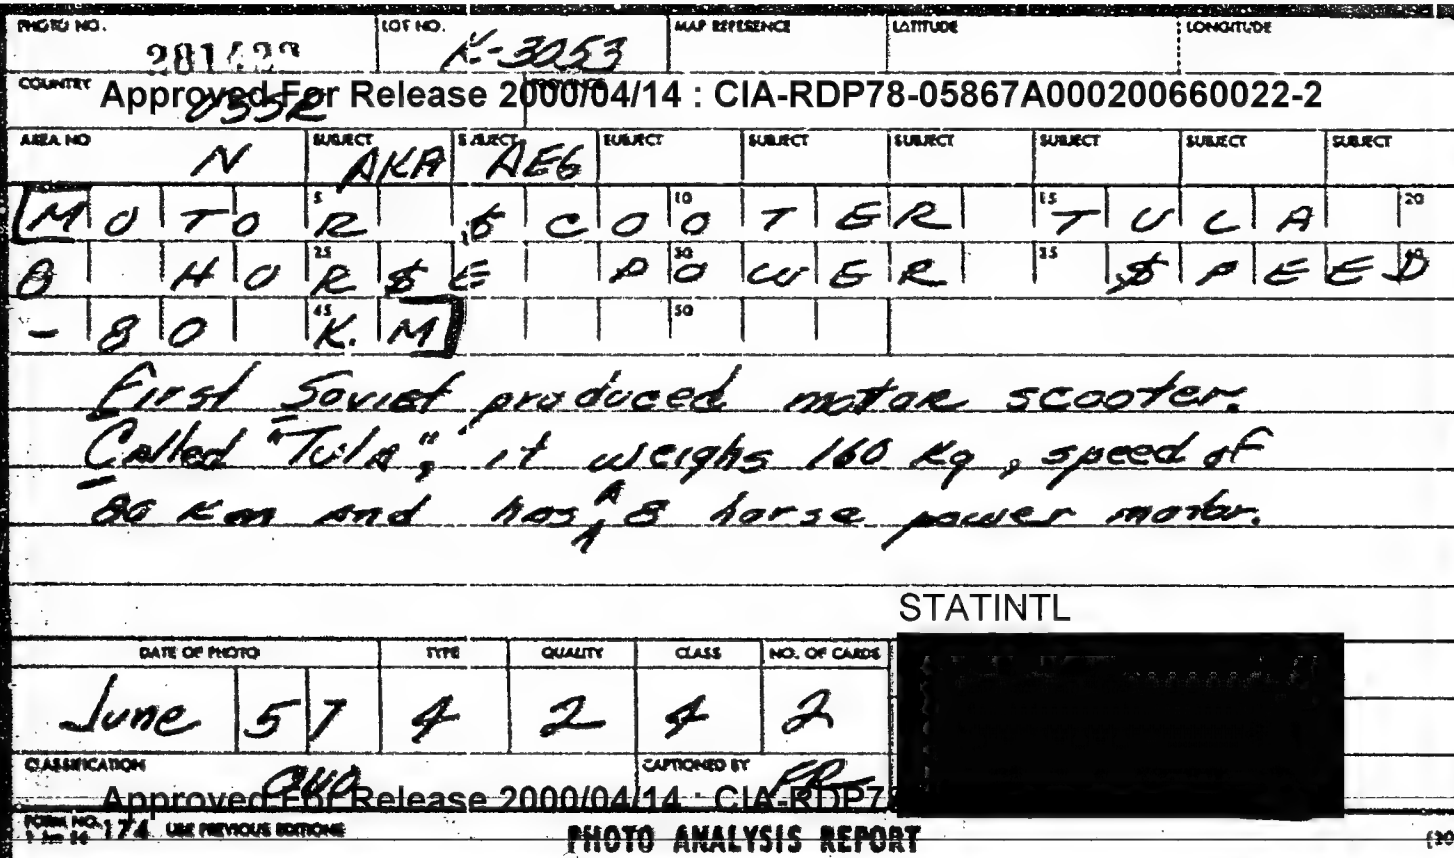 PHOTO NO. LOT NO. MAP REFERENCE LATITUDE LONGITUDE
K-3053
COUNTRY
Approved For Release 2000/04/14 : CIA-RDP78-05867A000200660022-2
USSR
AREA NO SUBJECT SUBJECT SUBJECT SUBJECT SUBJECT SUBJECT SUBJECT SUBJECT
N AKA AEG
5 10 15 20
MOTOR SCOOTER TULA
25 30 35 40
8 HORSE POWER SPEED
45 50
-80 K.M
First Soviet produced motor scooter.
Called "Tula", it weighs 160 Kg, speed of
80 Km and has A 8 horse power motor.
STATINTL
DATE OF PHOTO TYPE QUALITY CLASS NO. OF CARDS
June 57 4 2 4 2
CLASSIFICATION CAPTIONED BY
Approved For Release 2000/04/14 : CIA-RDP78
FORM NO. 174 USE PREVIOUS EDITIONS PHOTO ANALYSIS REPORT